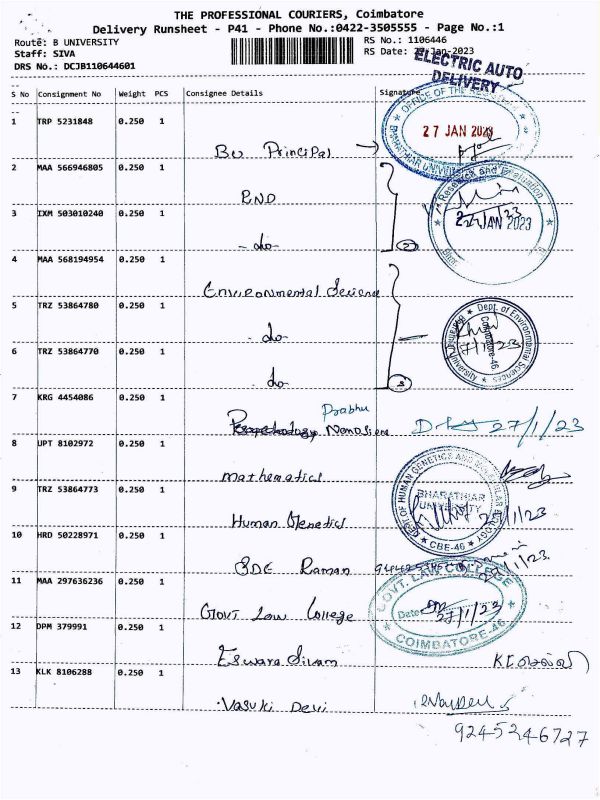 THE PROFESSIONAL COURIERS, Coimbatore
Delivery Runsheet - P41 - Phone No.:0422-3505555 - Page No.:1
Route: B UNIVERSITY
RS No.: 1106446
Staff: SIVA
RS Date: Jan-2023
DRS No.: DCJB110644601
ELECTRIC AUTO
DELIVERY
S No Consignment No Weight PCS Consignee Details Signature
1 TRP 5231848 0.250 1
OFFICE OF THE
BHARATHIAR UNIVERSITY
27 JAN 2023
Bu Principal
2 MAA 566946805 0.250 1
Research and Evaluation
RND
3 IXM 503010240 0.250 1
JAN 2023
-do-
4 MAA 568194954 0.250 1
Environmental Science
5 TRZ 53864780 0.250 1
Dept. of Environmental Sciences
Coimbatore-46
-do-
6 TRZ 53864770 0.250 1
-do-
7 KRG 4454086 0.250 1
Prabhu
27/1/23
8 UPT 8102972 0.250 1
mathematics
9 TRZ 53864773 0.250 1
DEPT OF HUMAN GENETICS AND MOLECULAR BIOLOGY
BHARATHIAR
UNIVERSITY
CBE-46
Human Genetics
10 HRD 50228971 0.250 1
SDE Raman
11 MAA 297636236 0.250 1
GOVT. LAW COLLEGE
Date
27/1/23
COIMBATORE-46
Govt Law College
12 DPM 379991 0.250 1
Eswara Sivam
13 KLK 8106288 0.250 1
Vasuki Devi
9245246727